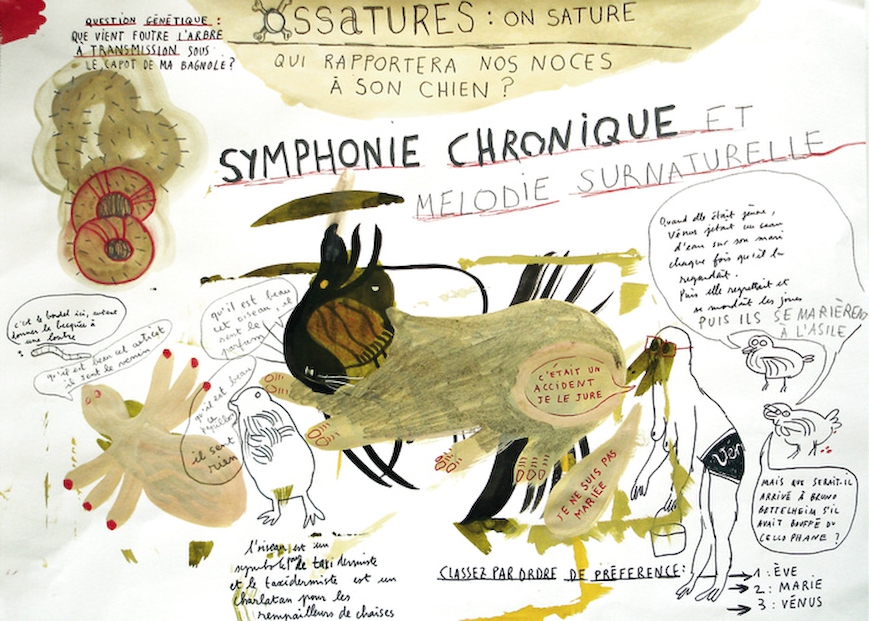 QUESTION GÉNÉTIQUE :
QUE VIENT FOUTRE L'ARBRE
A TRANSMISSION SOUS
LE CAPOT DE MA BAGNOLE ?
OSSATURES : ON SATURE
QUI RAPPORTERA NOS NOCES
À SON CHIEN ?
SYMPHONIE CHRONIQUE ET
MELODIE SURNATURELLE
Quand elle était jeune,
Vénus jetait un seau
d'eau sur son mari
chaque fois qu'il la
regardait.
Puis elle regrettait et
se mordait les joues
PUIS ILS SE MARIÈRENT
À L'ASILE
c'est le bordel ici, autant
donner la becquée à
une loutre
qu'il est beau cet
il sent le
qu'il est beau
cet oiseau, il
sent le
parfum
qu'il est beau
ce
il sent
rien
C'ETAIT UN
ACCIDENT
JE LE JURE
JE NE SUIS PAS
MARIÉE
Ven
MAIS QUE SERAIT-IL
ARRIVÉ À BRUNO
BETTELHEIM S'IL
AVAIT BOUFFÉ DU
CELLOPHANE ?
l'oiseau est un
symbole de taxidermiste
et le taxidermiste est un
charlatan pour les
rempailleurs de chaises
CLASSEZ PAR ORDRE DE PRÉFERENCE :
1 : ÈVE
2 : MARIE
3 : VÉNUS